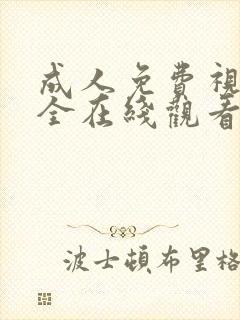 成人免費視
全在綫觀看
波士頓布里格